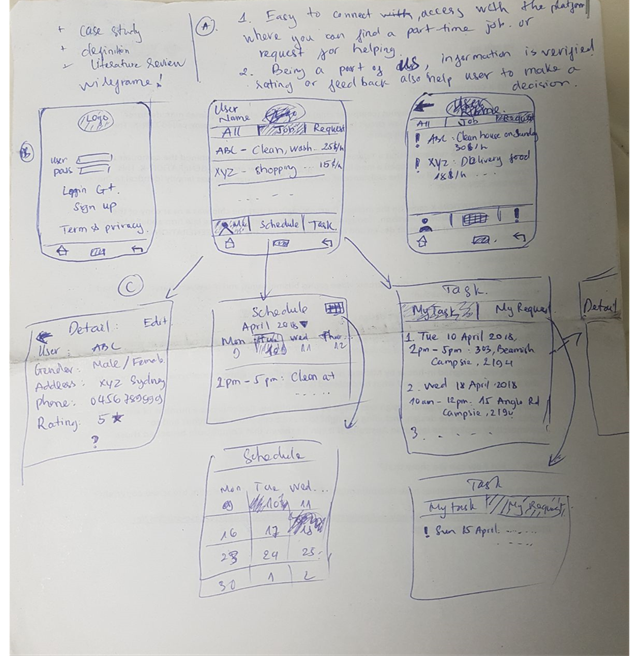 + case study
+ definition
+ Literature Review
wireframe!
A
1. Easy to connect with, access with the platform
where you can find a part time job. or
request for helping.
2. Being a part of us, information is verified
rating or feedback also help user to make a
decision.
B
Logo
user
pass
Login G+.
Sign up
Term & privacy.
User
Name
Logo
All Job Request
ABC - Clean, wash. 25$/h
XYZ - shopping ... 15$/h
- - - -
Me Schedule Task
User
Name.
All Job Request
! ABC: Clean house on Sunday
30$/h
! XYZ: Delivery food
18$/h - - - -
!
C
Detail: Edit
User ABC
Gender: Male / Female
Address: XYZ Sydney
Phone: 0456789999
Rating: 5 ★
?
Schedule
April 2018 ▼
Mon Tue Wed Thu...
9 10 11 12
1pm - 5pm: Clean at
- - - - -
Task
My Task My Request
1. Tue 10 April 2018,
2pm - 5pm: 303, Beamish
Campsie, 2194
2. Wed 18 April 2018
10am - 12pm. 15 Anglo Rd
Campsie, 2194
3. - - - - -
Detail
Schedule
Mon Tue Wed...
9 10 11
16 17 18
23 24 25
30 1 2
Task
My task My Request
! Sun 15 April - - - -
- - - -